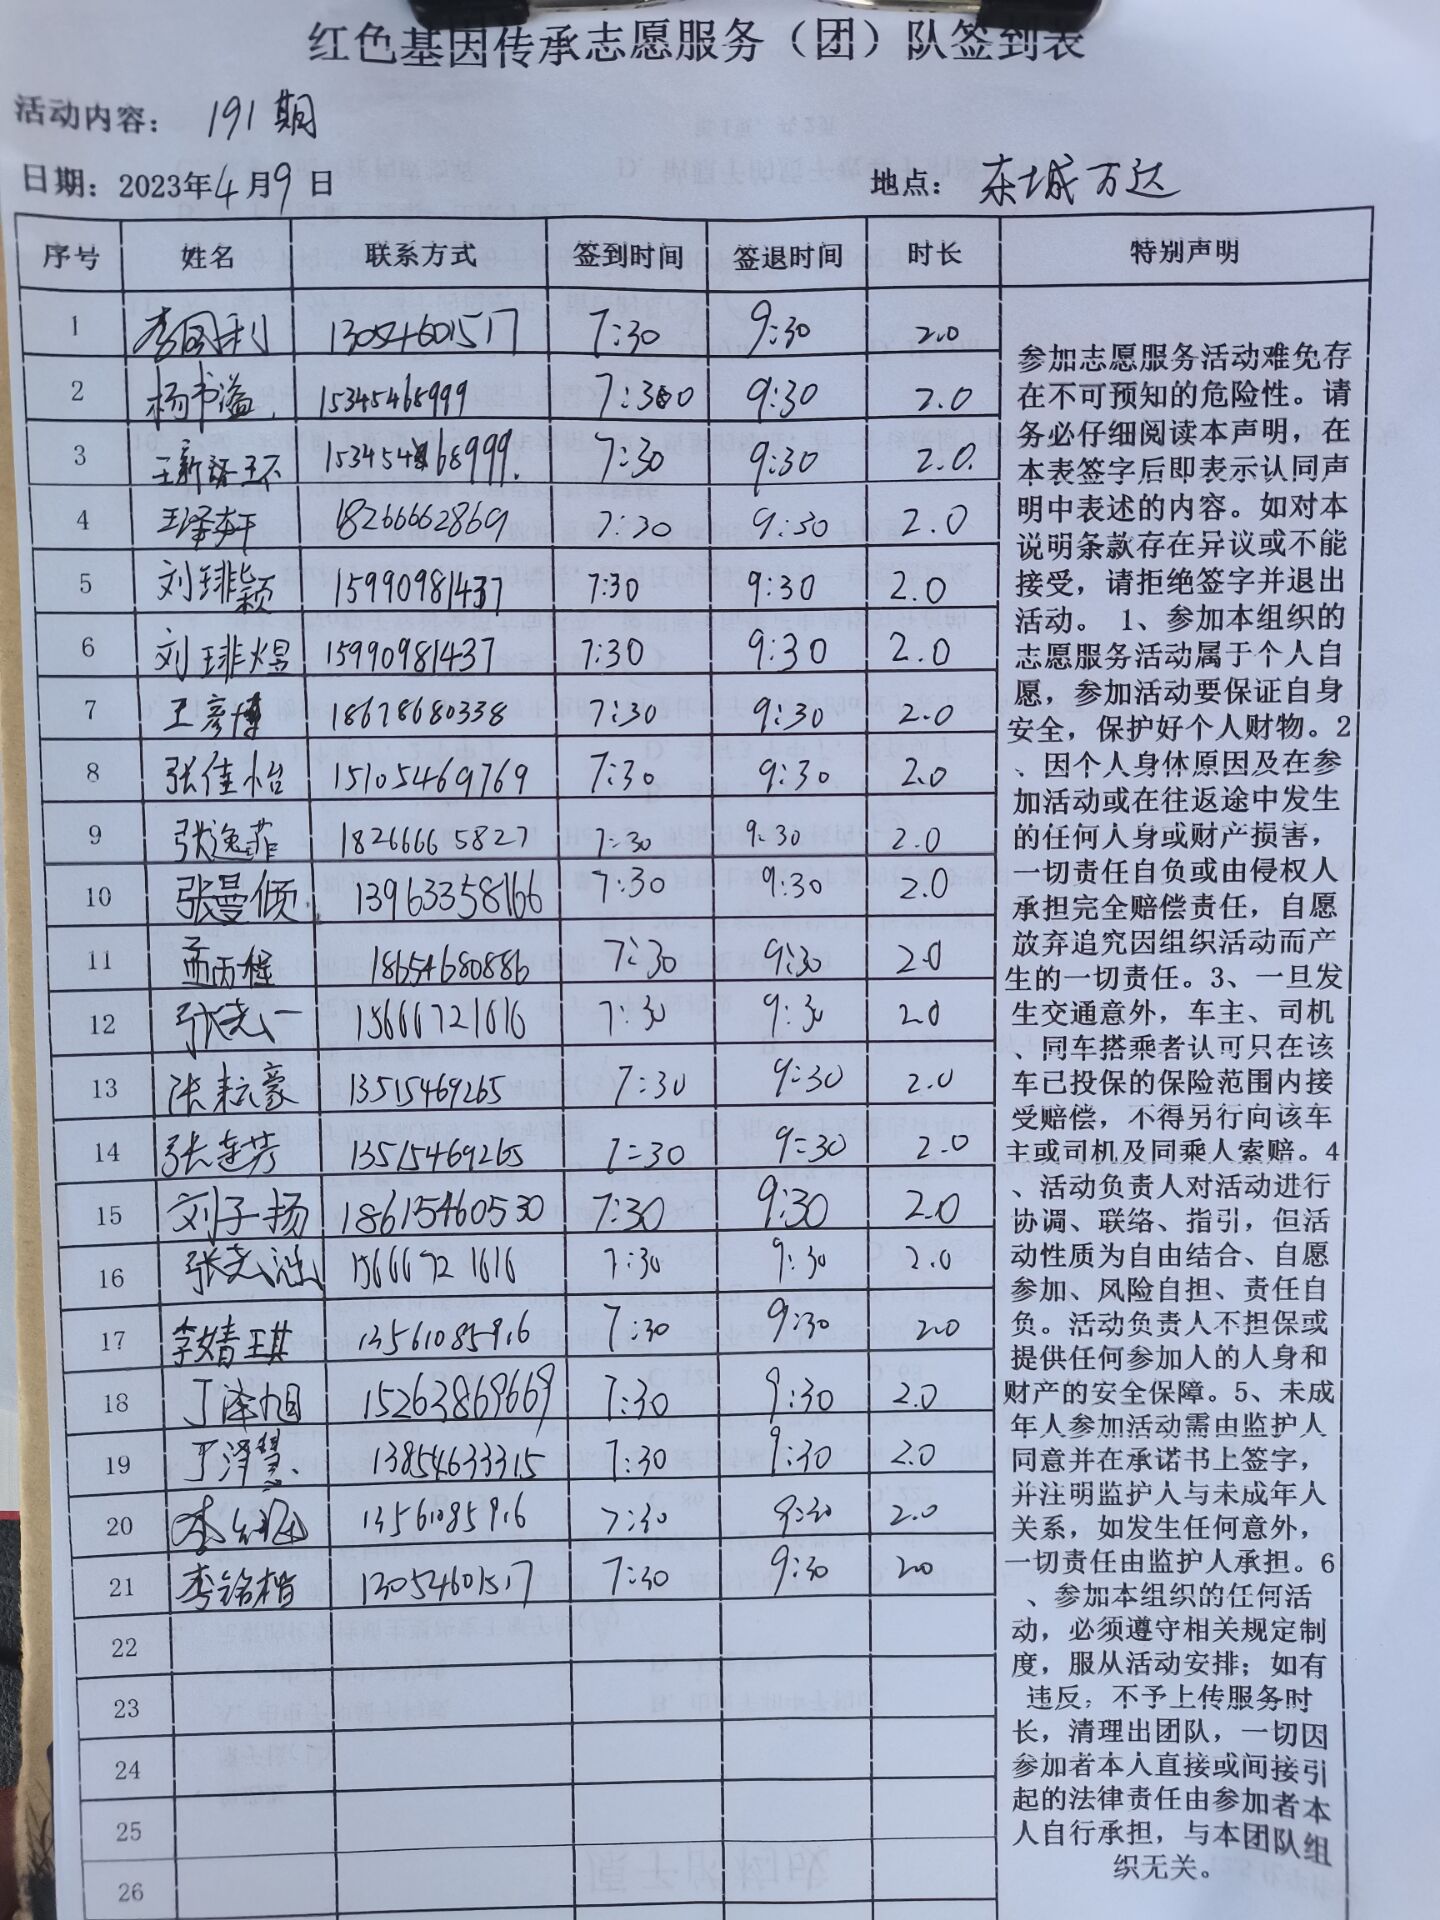 红色基因传承志愿服务（团）队签到表
活动内容： 191期
日期：2023年4月9日 地点：东城万达
序号 姓名 联系方式 签到时间 签退时间 时长 特别声明
1 李国利 13054601517 7:30 9:30 2.0
2 杨书溢 15345468999 7:30 9:30 2.0
3 15345468999 7:30 9:30 2.0
4 王泽轩 18266662869 7:30 9:30 2.0
5 刘琲颖 15990981437 7:30 9:30 2.0
6 刘琲煜 15990981437 7:30 9:30 2.0
7 王彦博 18678680338 7:30 9:30 2.0
8 张佳怡 15105469769 7:30 9:30 2.0
9 张逸菲 18266665827 7:30 9:30 2.0
10 张曼倾 13963358166 7:30 9:30 2.0
11 孟丙程 18654680886 7:30 9:30 2.0
12 张尧一 15666721616 7:30 9:30 2.0
13 张耘豪 13515469265 7:30 9:30 2.0
14 张连芳 13515469265 7:30 9:30 2.0
15 刘子扬 18615460530 7:30 9:30 2.0
16 张尧涵 15666721616 7:30 9:30 2.0
17 李婧琪 13561085916 7:30 9:30 2.0
18 丁泽旭 15263869669 7:30 9:30 2.0
19 丁泽慧 13854633315 7:30 9:30 2.0
20 13561085916 7:30 9:30 2.0
21 李铭楷 13054601517 7:30 9:30 2.0
22
23
24
25
26
参加志愿服务活动难免存
在不可预知的危险性。请
务必仔细阅读本声明，在
本表签字后即表示认同声
明中表述的内容。如对本
说明条款存在异议或不能
接受，请拒绝签字并退出
活动。 1、参加本组织的
志愿服务活动属于个人自
愿，参加活动要保证自身
安全，保护好个人财物。2
、因个人身体原因及在参
加活动或在往返途中发生
的任何人身或财产损害，
一切责任自负或由侵权人
承担完全赔偿责任，自愿
放弃追究因组织活动而产
生的一切责任。3、一旦发
生交通意外，车主、司机
、同车搭乘者认可只在该
车已投保的保险范围内接
受赔偿，不得另行向该车
主或司机及同乘人索赔。4
、活动负责人对活动进行
协调、联络、指引，但活
动性质为自由结合、自愿
参加、风险自担、责任自
负。活动负责人不担保或
提供任何参加人的人身和
财产的安全保障。5、未成
年人参加活动需由监护人
同意并在承诺书上签字，
并注明监护人与未成年人
关系，如发生任何意外，
一切责任由监护人承担。6
、参加本组织的任何活
动，必须遵守相关规定制
度，服从活动安排；如有
违反，不予上传服务时
长，清理出团队，一切因
参加者本人直接或间接引
起的法律责任由参加者本
人自行承担，与本团队组
织无关。